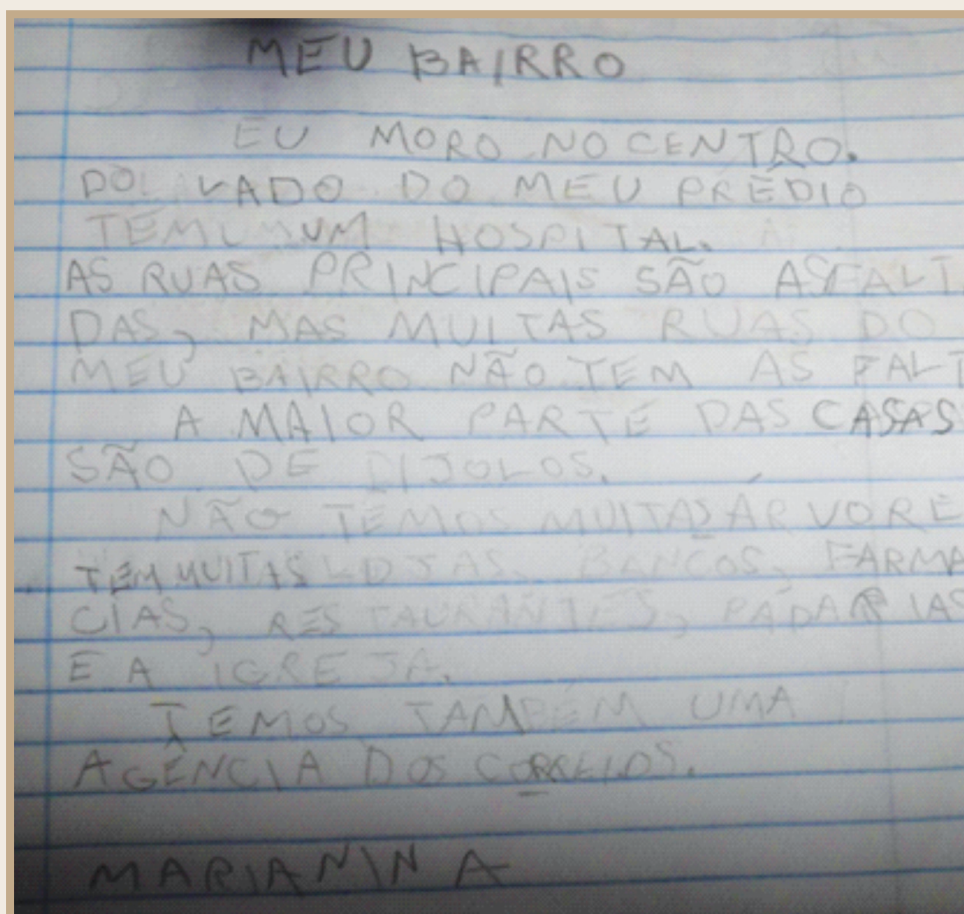 MEU BAIRRO
EU MORO NO CENTRO.
DO LADO DO MEU PRÉDIO
TEM UM HOSPITAL.
AS RUAS PRINCIPAIS SÃO ASFALT
DAS, MAS MUITAS RUAS DO
MEU BAIRRO NÃO TEM ASFALT
A MAIOR PARTE DAS CASAS
SÃO DE TIJOLOS.
NÃO TEMOS MUITAS ÁRVORE
TEM MUITAS LOJAS, BANCOS, FARMA
CIAS, RESTAURANTES, PADARIAS
E A IGREJA.
TEMOS TAMBÉM UMA
AGÊNCIA DOS CORREIOS.
MARIANINA